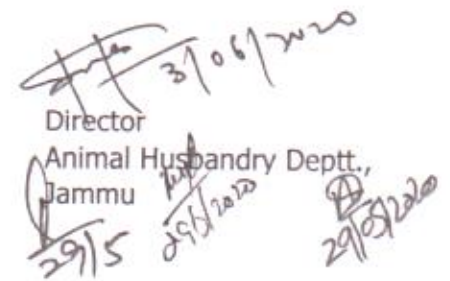 3/06/2020
Director
Animal Husbandry Deptt.,
Jammu
29/5
29/5/2020
29/05/2020